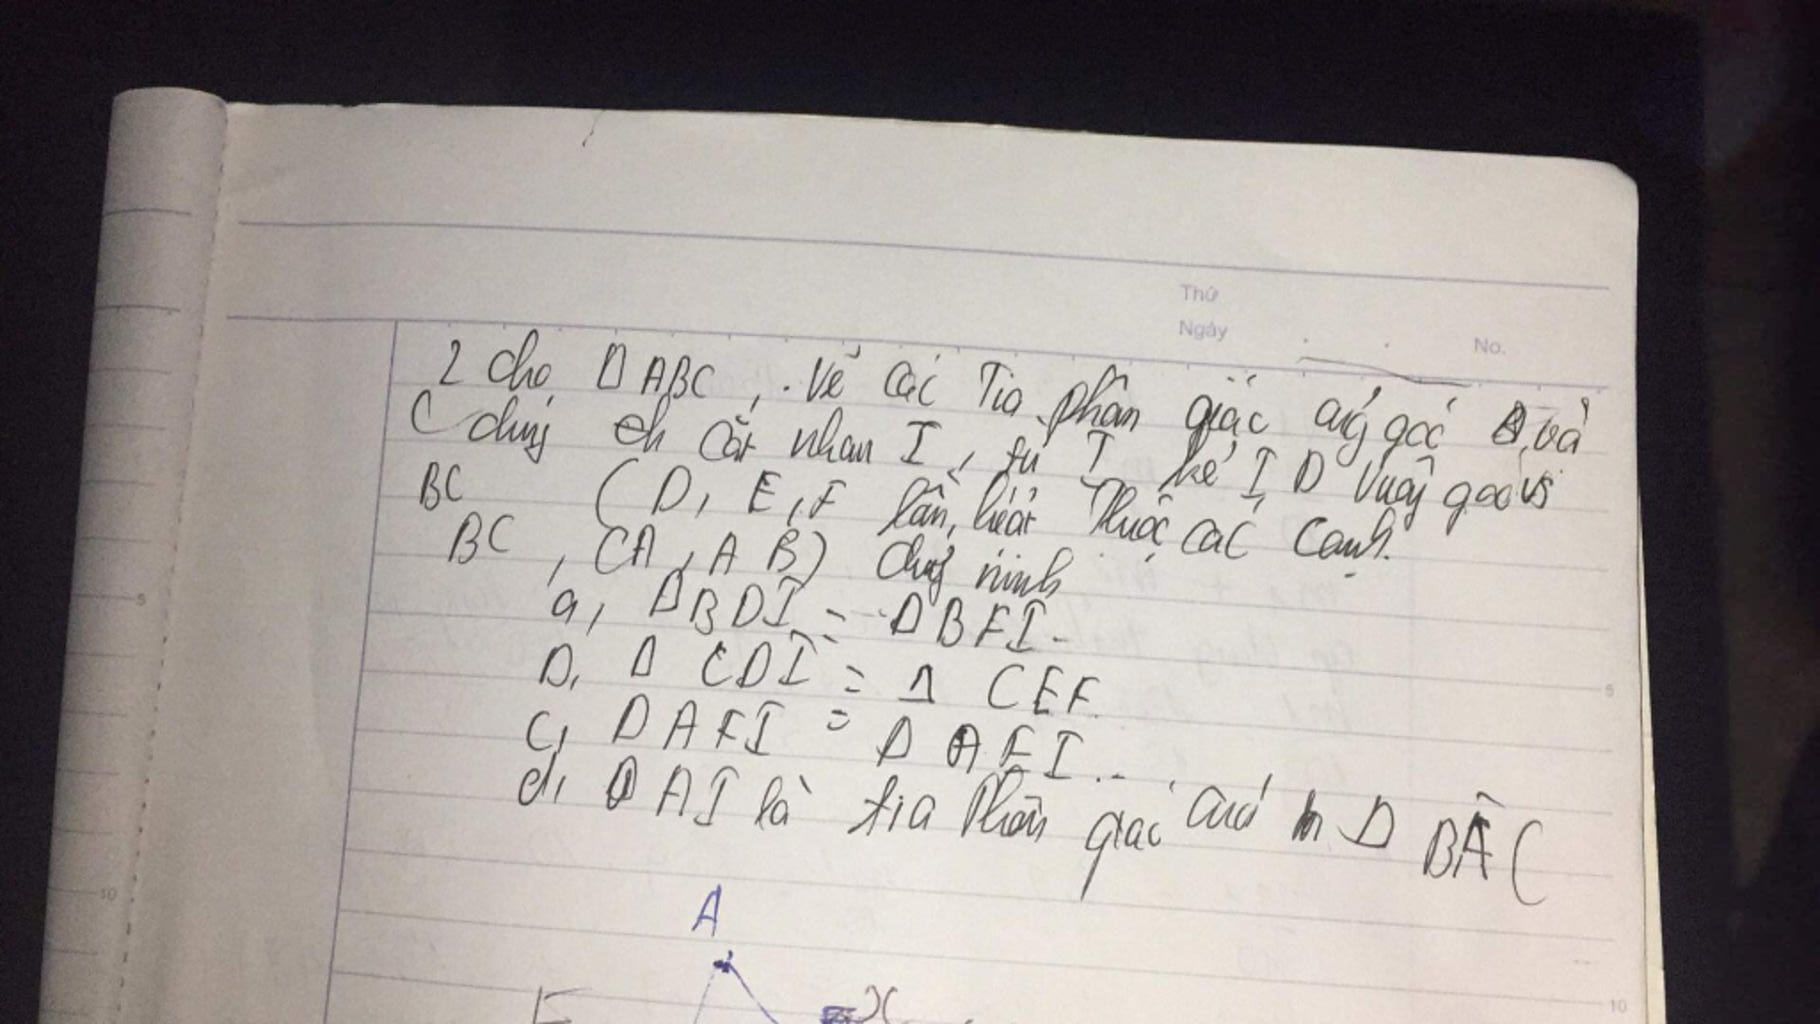 Thứ
Ngày No.
2 cho Δ ABC, . Vẽ các Tia phân giác của góc B và
C chúng cắt nhau I, từ I kẻ I D vuông góc với
BC (D, E, F lần lượt thuộc các cạnh.
BC, CA, A B) chứng minh
a, Δ BDI = Δ BFI.
b, Δ CDI = Δ CEF.
c, Δ AFI = Δ AEI...
d, AI là tia phân giác của Δ BÂC
A
F
5
5
10
10